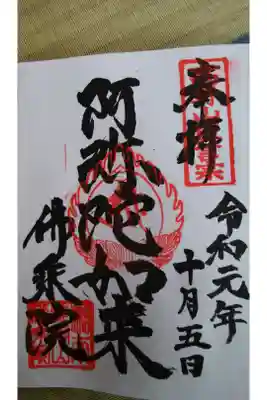 奉拝
令和元年
十月五日
阿弥陀如来
佛乗院